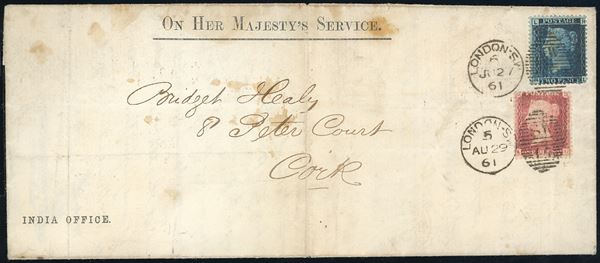 On Her Majesty's Service.
POSTAGE
TWO PENCE
LONDON·S.W
6
61
LONDON·S.W
5
AU 29
61
Bridget Healy
8 Peter Court
Cork
INDIA OFFICE.